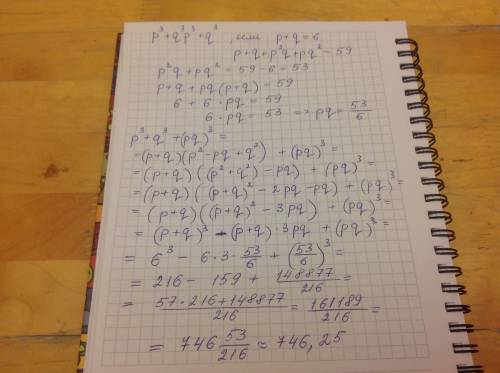 p³+q³p³+q³, если p+q=6
p+q+p²q+pq²=59
p²q+pq²=59-6=53
p+q+pq(p+q)=59
6+6·pq=59
6·pq=53 => pq=53/6
p³+q³+(pq)³=
=(p+q)(p²-pq+q²)+(pq)³=
=(p+q)((p²+q²)-pq)+(pq)³=
=(p+q)((p+q)²-2pq-pq)+(pq)³=
=(p+q)((p+q)²-3pq)+(pq)³=
=(p+q)³-(p+q)·3pq+(pq)³=
=6³-6·3·53/6+(53/6)³=
=216-159+148877/216=
=57·216+148877/216=161189/216=
=746 53/216≈746,25